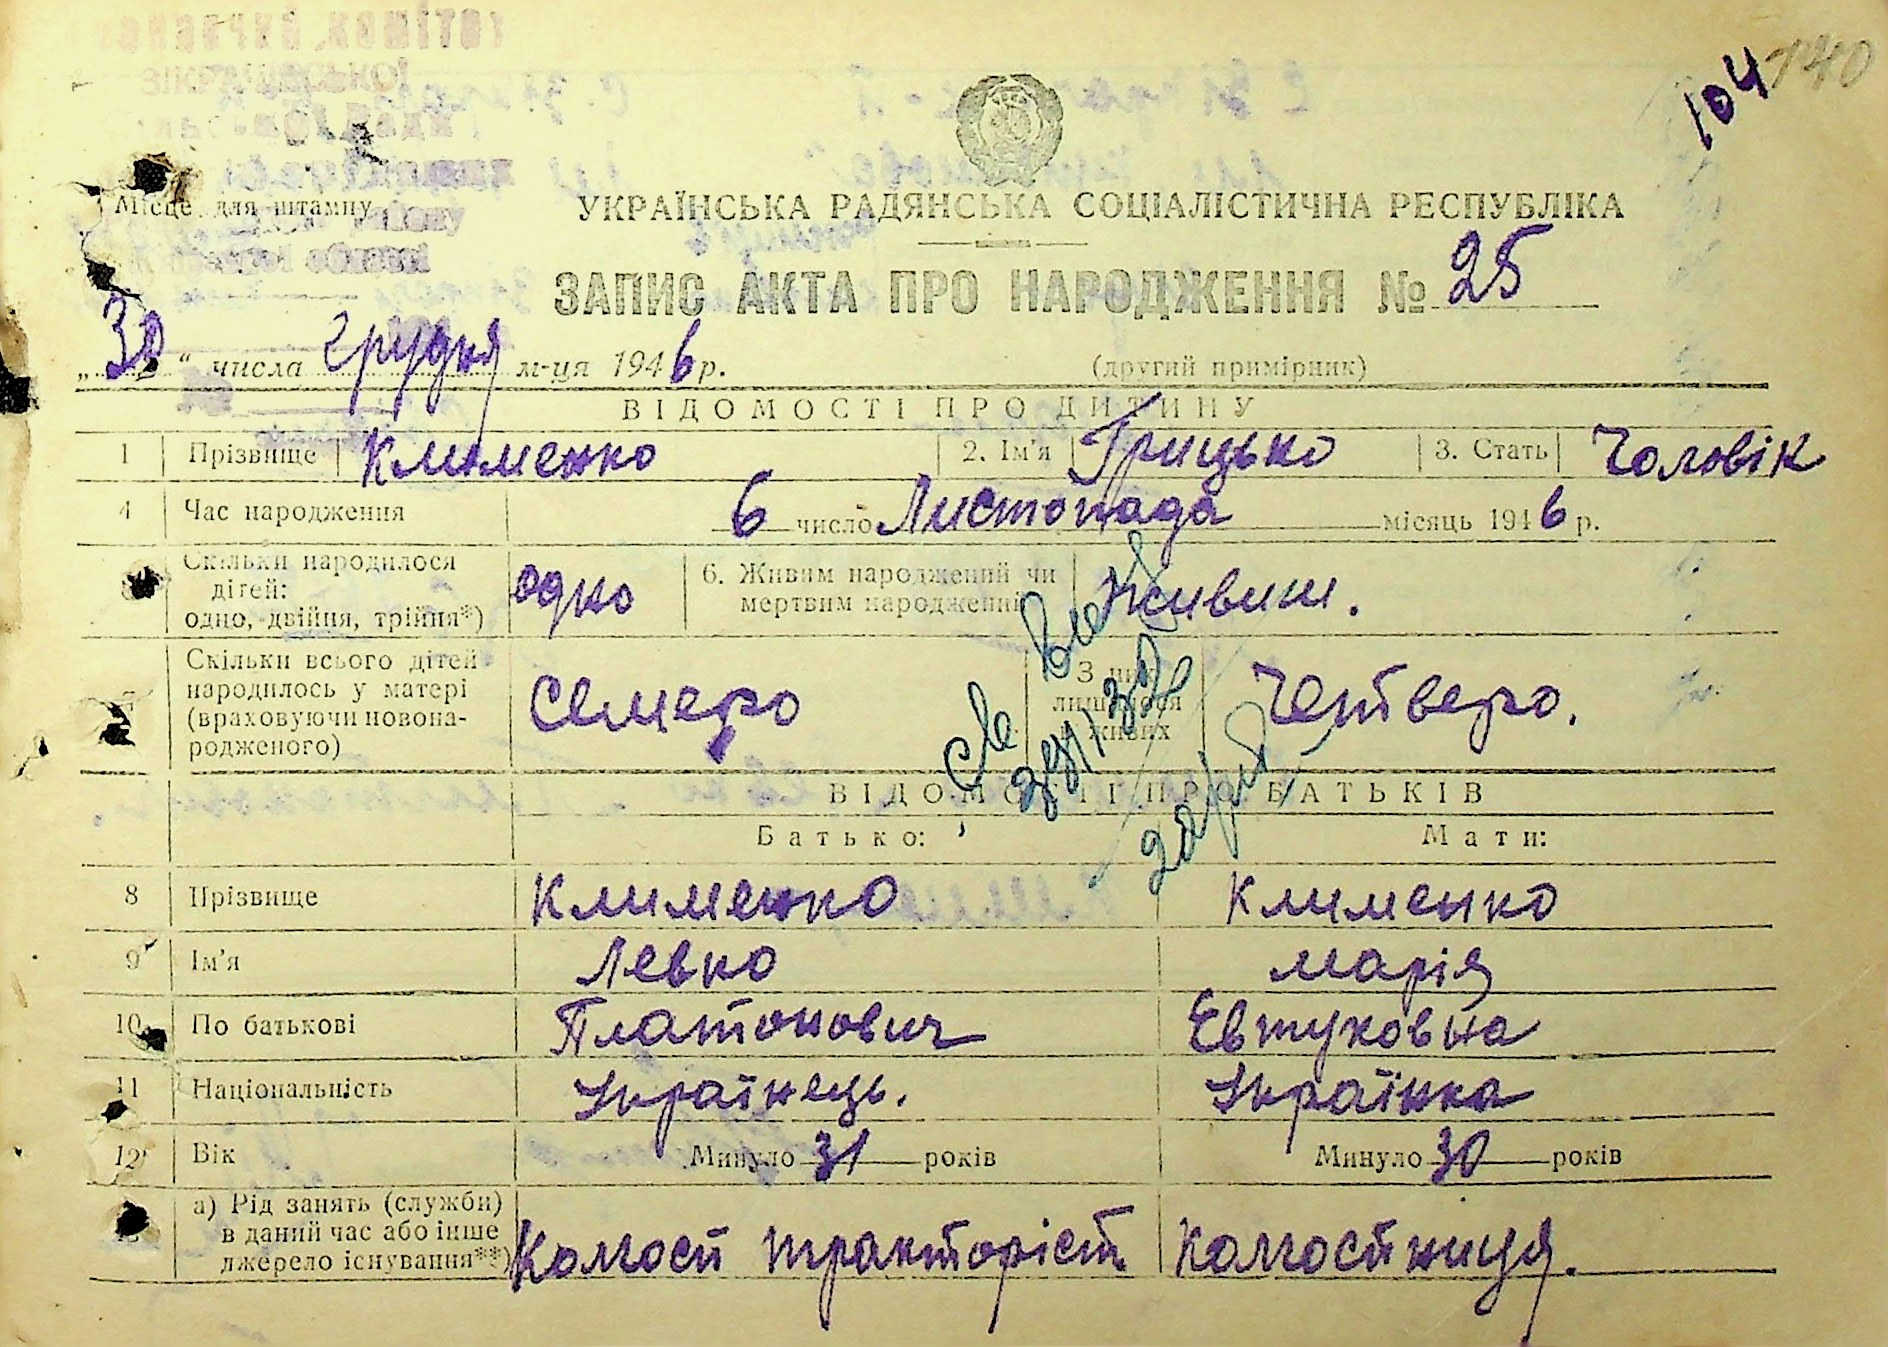 104 140
Місце для штампу
УКРАЇНСЬКА РАДЯНСЬКА СОЦІАЛІСТИЧНА РЕСПУБЛІКА
ЗАПИС АКТА ПРО НАРОДЖЕННЯ № 25
„30“ числа Грудня м-ця 1946 р. (другий примірник)
ВІДОМОСТІ ПРО ДИТИНУ
1 Прізвище Клименко 2. Ім'я Грицько 3. Стать Чоловік
4 Час народження 6 число Листопада місяць 1946 р.
Скільки народилося дітей: одно, двійня, трійня*) одно 6. Живим народжений чи мертвим народжений Живим.
7 Скільки всього дітей народилось у матері (враховуючи новонародженого) Семеро З них лишилося в живих Четверо.
ВІДОМОСТІ ПРО БАТЬКІВ
Батько: Мати:
8 Прізвище Клименко Клименко
9 Ім'я Левко Марія
10 По батькові Платонович Евтуковна
11 Національність Українець. Українка
12 Вік Минуло 31 років Минуло 30 років
а) Рід занять (служби) в даний час або інше джерело існування**) Колгосп тракторіст Колгоспниця.